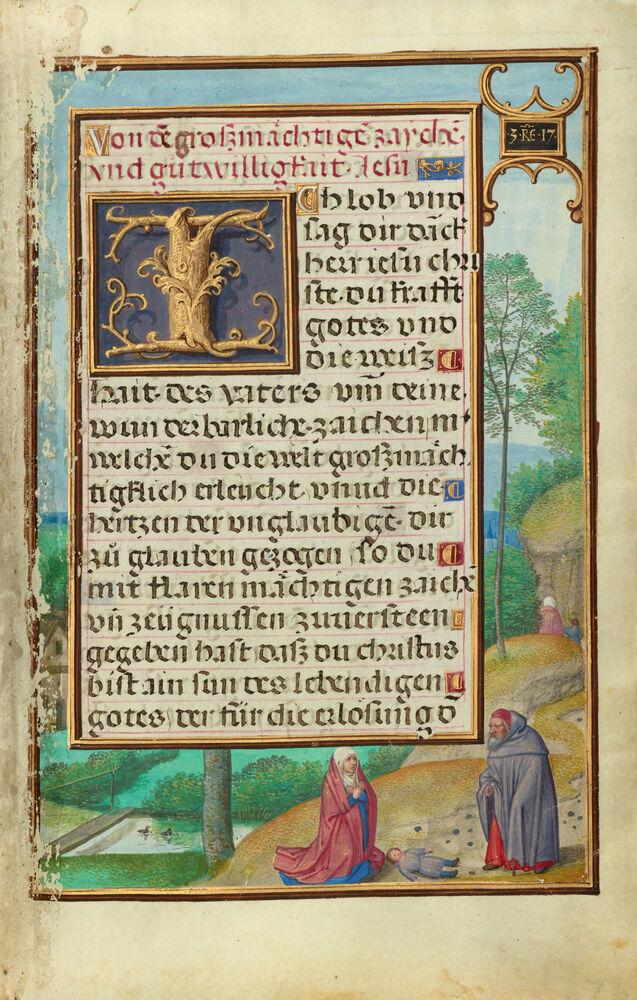 Von dē groszmächtigē zaychē
vnd gutwilligkait Jesu
Ich lob vnd
sag dir dāck
herr iesu chri
ste. du krafft
gotes vnd
die weisz
hait des vaters vm̄ deine
wunderbarliche zaichen mͭ
welchē du die welt groszmäch
tigklich erleucht. vnnd die
hertzen der vnglaubigē. dir
zů glauben gezogen so du
mit klaren mächtigen zaichē
vn̄ zeugnussen zuuersteen
gegeben hast dasz du christus
bist ain sun des lebendigen
gotes, der für die erlösung d̄
·3·RE·17·